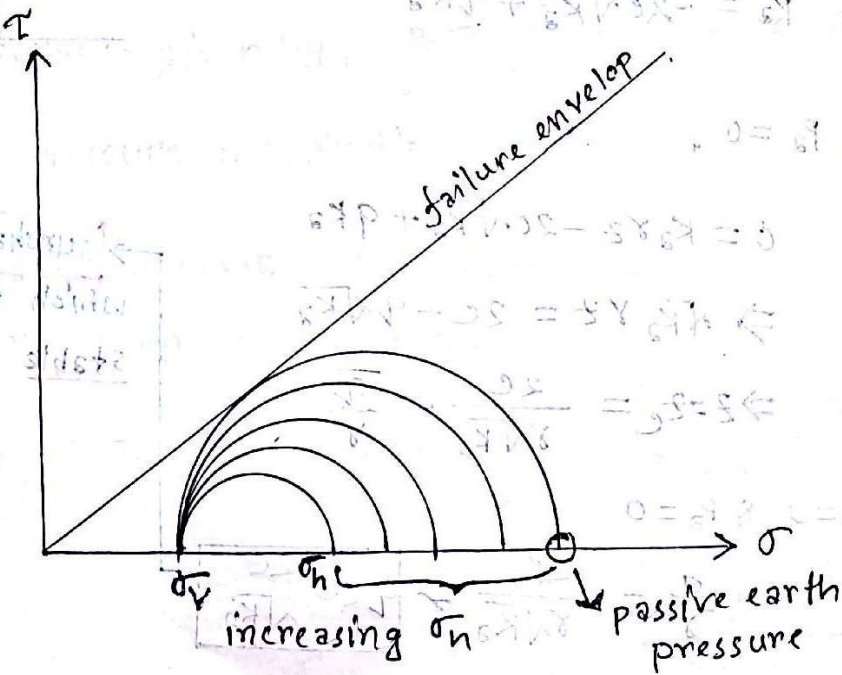 τ
failure envelop
σ
σv
σh
increasing σh
passive earth
pressure